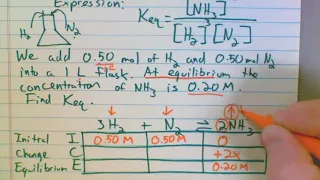 Expression:
Keq = [NH₃]
[H₂]³[N₂]
H₂ N₂
We add 0.50 mol of H₂ and 0.50 mol N₂
into a 1 L flask. At equilibrium the
concentration of NH₃ is 0.20M.
Find Keq.
3H₂ + N₂ ⇌ 2NH₃
Initial I 0.50 M 0.50 M 0
Change C +2x
Equilibrium E 0.20M